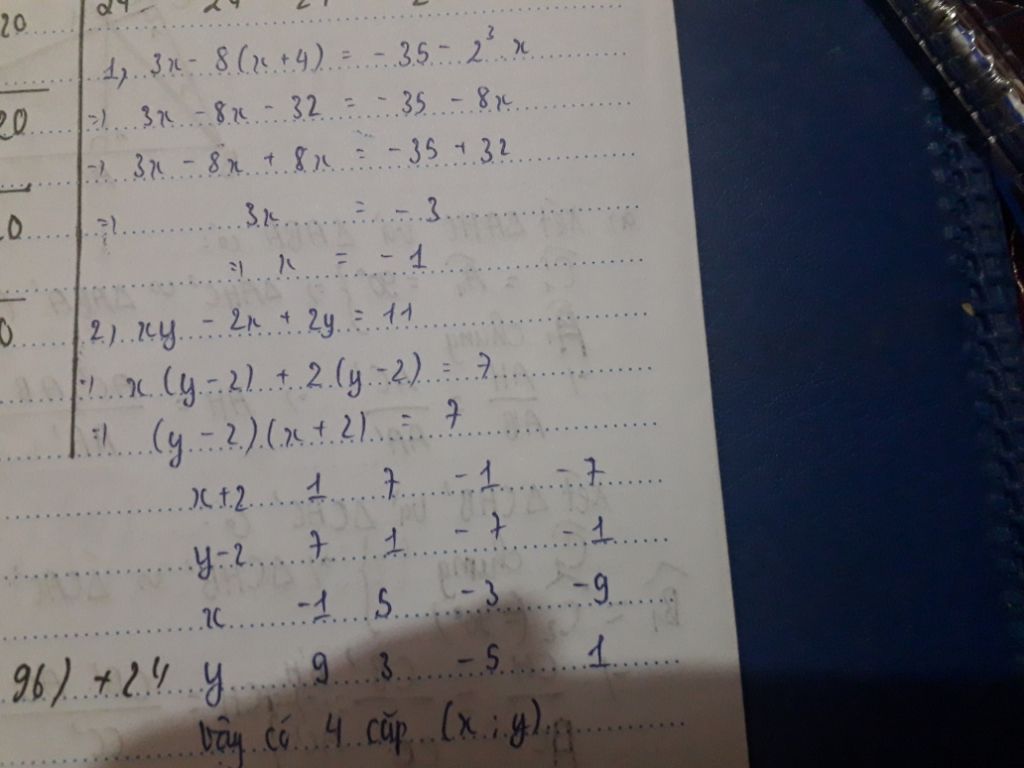 20
24 24 24 2
1, 3x - 8(x+4) = - 35 - 2³ x
20
=> 3x - 8x - 32 = - 35 - 8x
=> 3x - 8x + 8x = - 35 + 32
0
=> 3x = - 3
=> x = - 1
0
2, xy - 2x + 2y = 11
=> x (y - 2) + 2 (y - 2) = 7
=> (y - 2)(x + 2) = 7
x+2 1 7 -1 -7
y-2 7 1 -7 -1
x -1 5 -3 -9
96) + 24
y 9 3 -5 1
Vậy có 4 cặp (x ; y)